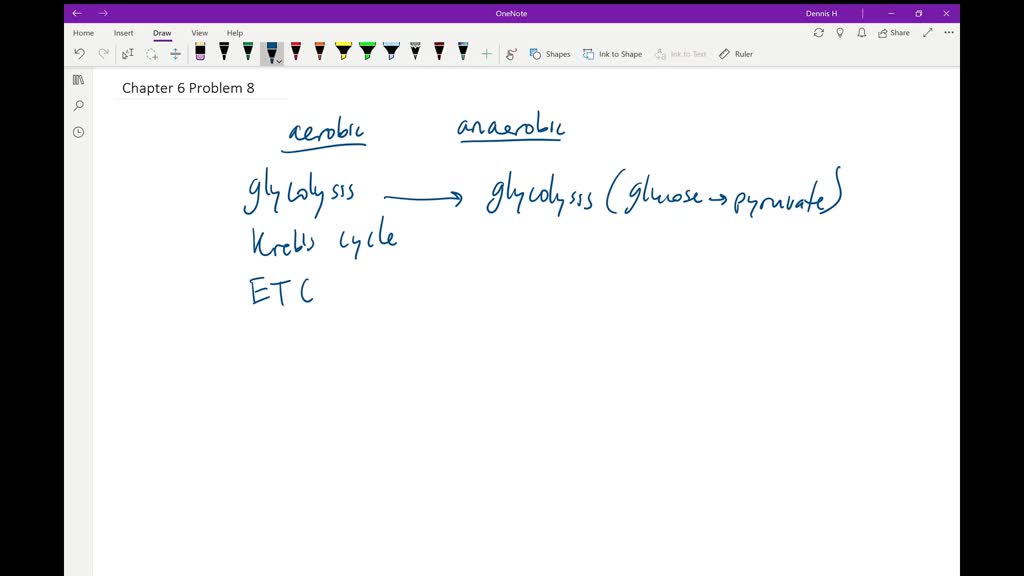 OneNote
Dennis H
Home Insert Draw View Help
Share
Shapes Ink to Shape Ink to Text Ruler
Chapter 6 Problem 8
aerobic anaerobic
glycolysss → glycolysss (glucose → pyruvate)
Krebs cycle
ETC